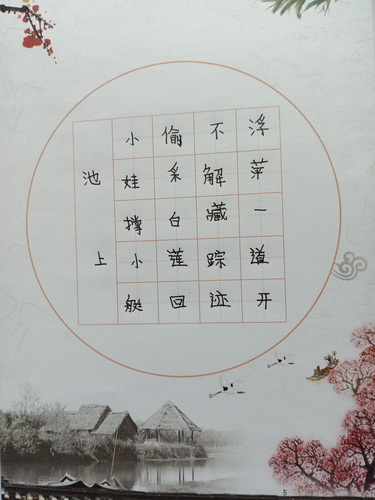 池上
小娃撑小艇
偷采白莲回
不解藏踪迹
浮萍一道开
5